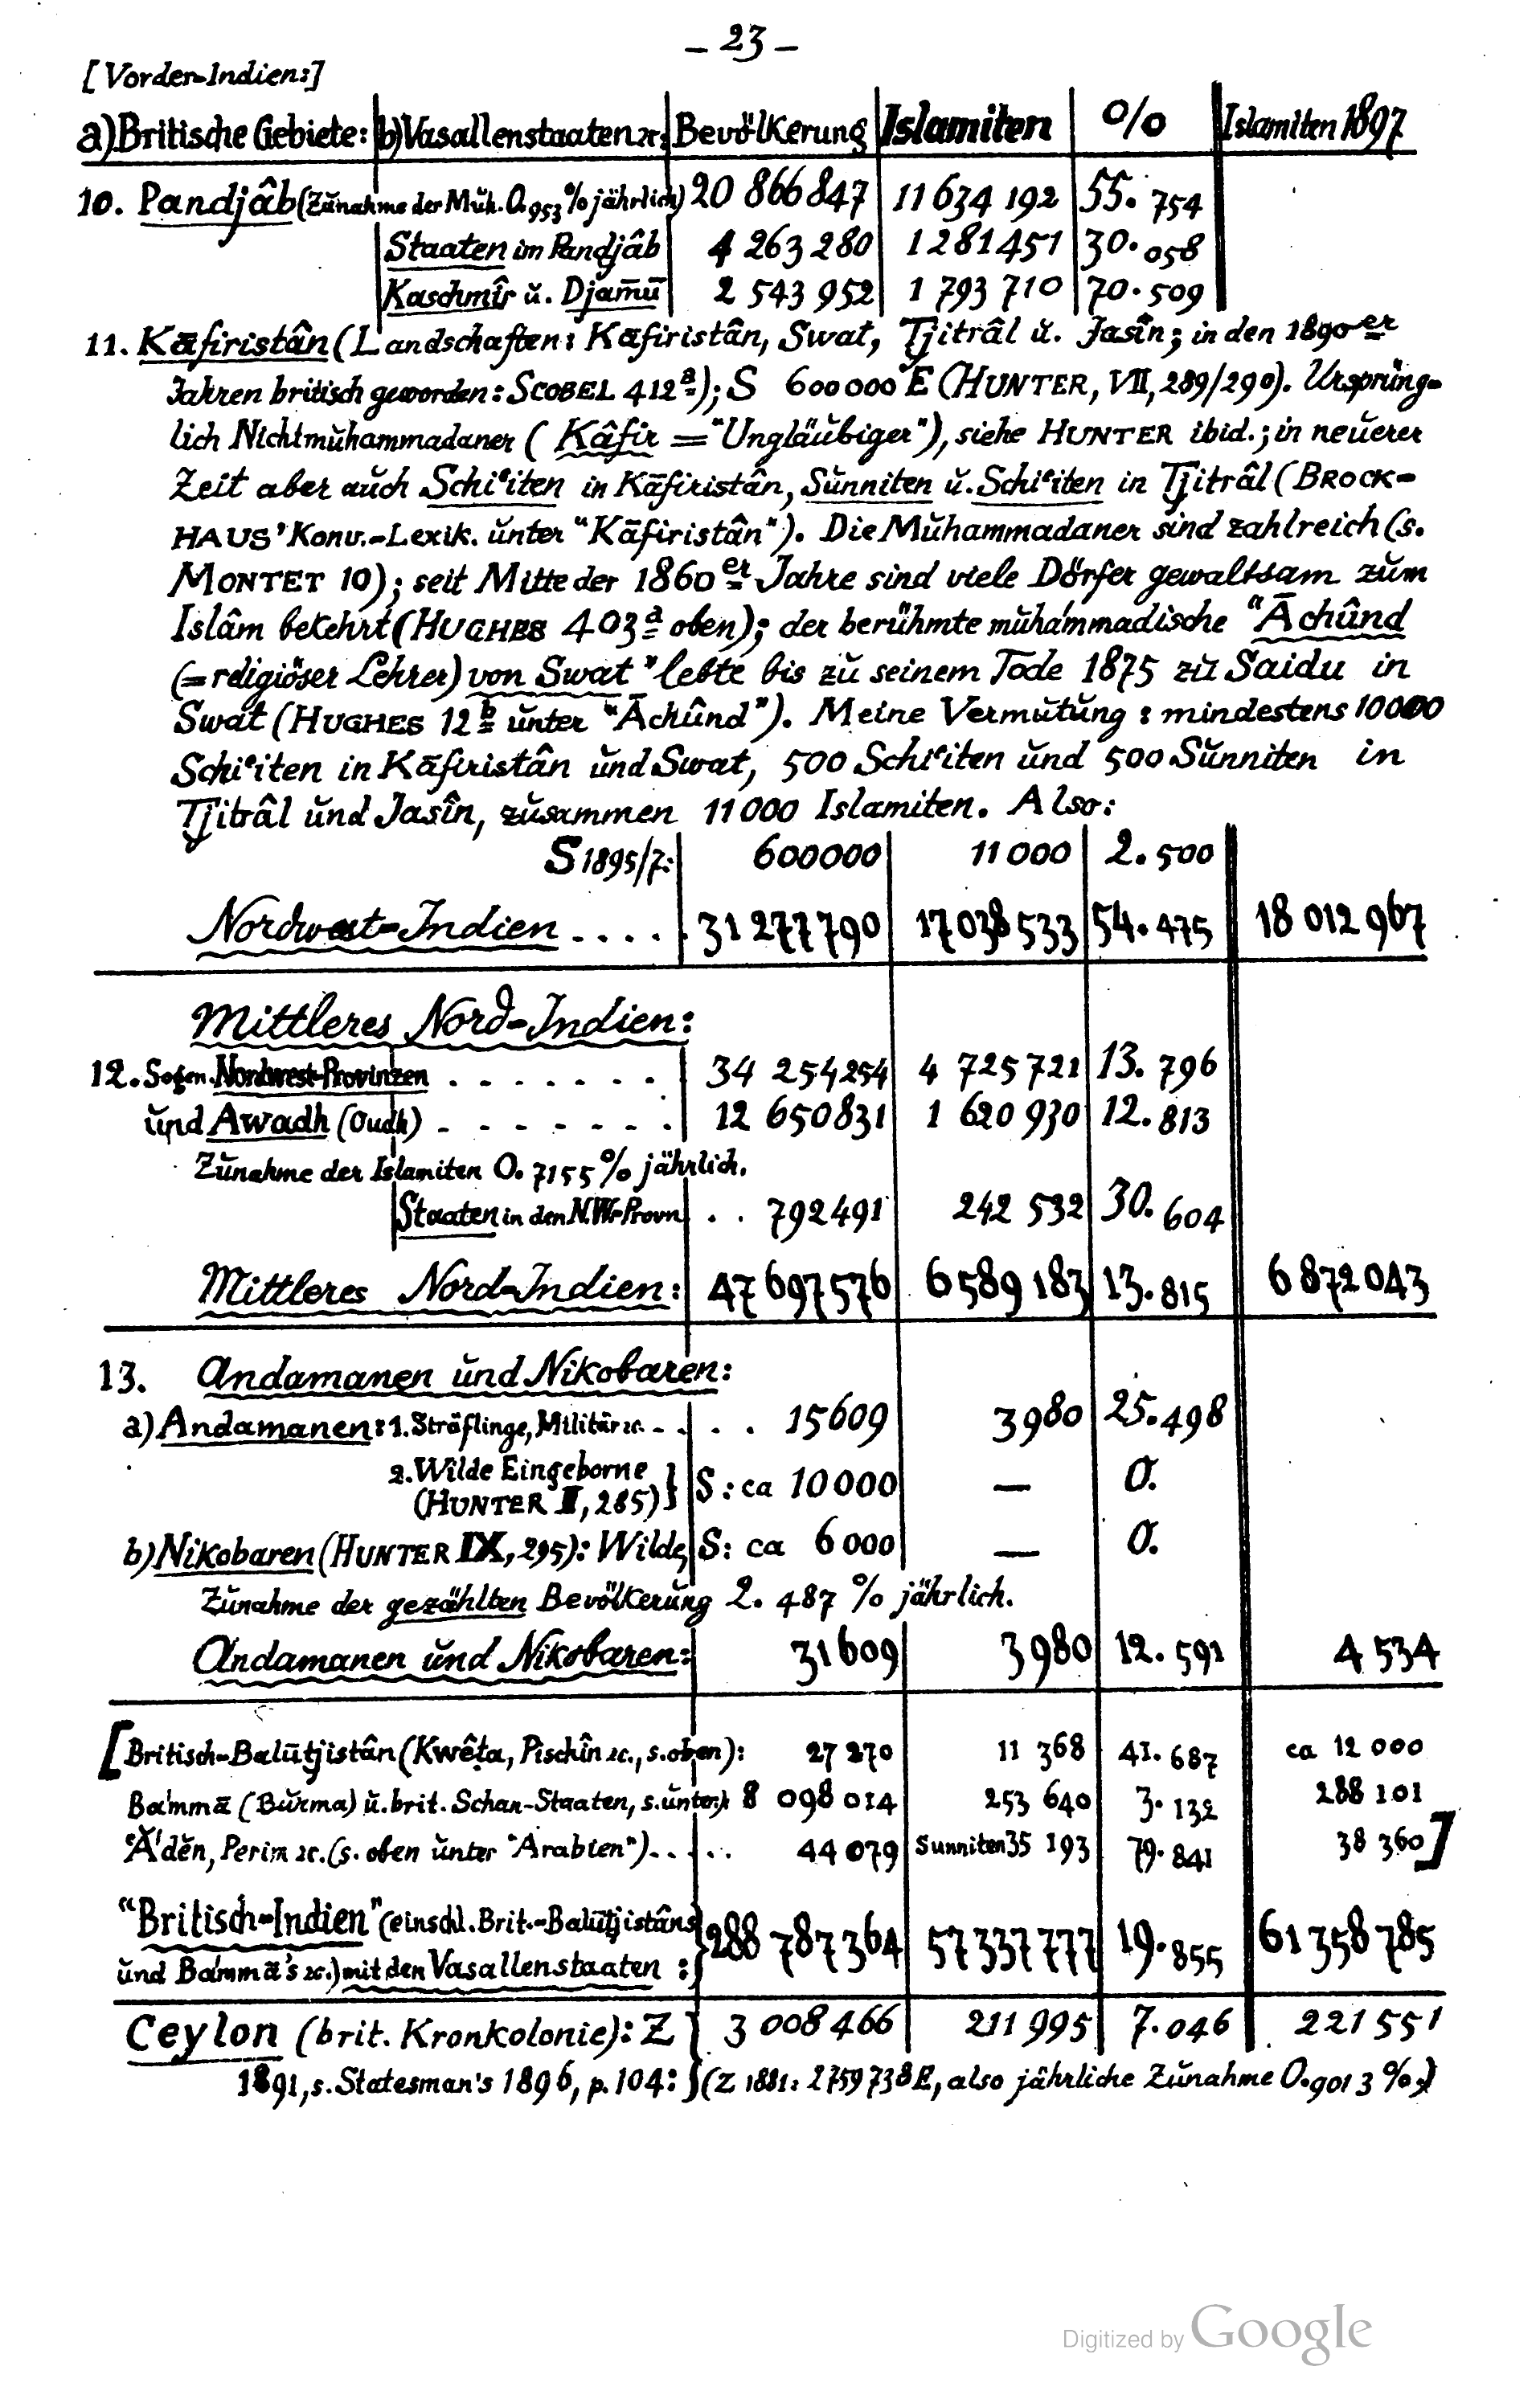 – 23 –
[Vorder-Indien:]
a) Britische Gebiete: b) Vasallenstaaten ꝛc: Bevölkerung Islamiten % Islamiten 1897
10. Pandjâb (Zŭnahme der Mŭh. 0.953 % jährlich) 20 866 847 11 634 192 55.754
Staaten im Pandjâb 4 263 280 1 281 451 30.058
Kaschmîr ŭ. Djamū 2 543 952 1 793 710 70.509
11. Kāfiristân (Landschaften: Kāfiristân, Swat, Tjitrâl ŭ. Jasîn; in den 1890er
Jahren britisch geworden: SCOBEL 412a); S 600 000 E (HUNTER, VII, 289/290). Ursprŭng-
lich Nichtmŭhammadaner (Kâfir = "Ungläŭbiger"), siehe HUNTER ibid.; in neŭerer
Zeit aber aŭch Schiʿiten in Kāfiristân, Sŭnniten ŭ. Schiʿiten in Tjitrâl (BROCK-
HAUS' Konv.-Lexik. ŭnter "Kāfiristân"). Die Mŭhammadaner sind zahlreich (s.
MONTET 10); seit Mitte der 1860er Jahre sind viele Dörfer gewaltsam zŭm
Islâm bekehrt (HUGHES 403a oben); der berühmte mŭhammadische "Āchûnd
(= religiöser Lehrer) von Swat" lebte bis zŭ seinem Tode 1875 zŭ Saidu in
Swat (HUGHES 12b ŭnter "Āchûnd"). Meine Vermŭtŭng: mindestens 10000
Schiʿiten in Kāfiristân ŭnd Swat, 500 Schiʿiten ŭnd 500 Sŭnniten in
Tjitrâl ŭnd Jasîn, zŭsammen 11 000 Islamiten. Also:
S 1895/7: 600000 11 000 2.500
Nordwest-Indien .... 31 277 790 17 038 533 54.475 18 012 967
Mittleres Nord-Indien:
12. Sogen. Nordwest-Provinzen ....... 34 254 254 4 725 721 13.796
ŭnd Awadh (Oudh) ....... 12 650 831 1 620 930 12.813
Zŭnahme der Islamiten 0.7155 % jährlich.
Staaten in den N.W.-Provn .. 792 491 242 532 30.604
Mittleres Nord-Indien: 47 697 576 6 589 183 13.815 6 872 043
13. Andamanen ŭnd Nikobaren:
a) Andamanen: 1. Sträflinge, Militär ꝛc. .... 15609 3980 25.498
2. Wilde Eingeborne
(HUNTER II, 285) } S: ca 10 000 — 0.
b) Nikobaren (HUNTER IX, 295): Wilde, S: ca 6 000 — 0.
Zŭnahme der gezählten Bevölkerŭng 2.487 % jährlich.
Andamanen ŭnd Nikobaren: 31609 3980 12.591 4 534
[Britisch-Balūtjistân (Kwêṭa, Pischîn ꝛc., s. oben): 27 270 11 368 41.687 ca 12 000
Bammā (Bŭrma) ŭ. brit. Schan-Staaten, s. ŭnten): 8 098 014 253 640 3.132 288 101
ʿĂdĕn, Perim ꝛc. (s. oben ŭnter "Arabien").... 44 079 Sunniten 35 193 79.841 38 360]
"Britisch-Indien" (einschl. Brit.-Balūtjistâns
ŭnd Bammā's ꝛc.) mit den Vasallenstaaten :} 288 787 364 57 337 777 19.855 61 358 785
Ceylon (brit. Kronkolonie): Z } 3 008 466 211 995 7.046 221 551
1891, s. Statesman's 1896, p. 104: } (Z 1881: 2759 738 E, also jährliche Zŭnahme 0.9013 %.)
Digitized by Google